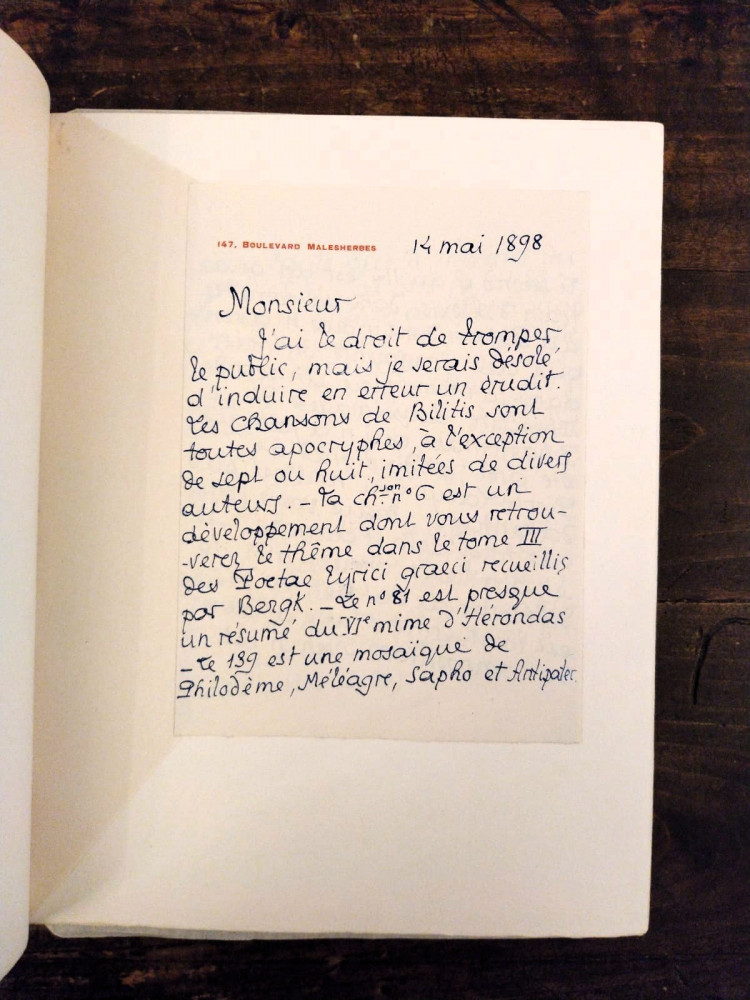 147, BOULEVARD MALESHERBES
14 mai 1898
Monsieur
J'ai le droit de tromper
le public, mais je serais désolé
d'induire en erreur un érudit.
Les Chansons de Bilitis sont
toutes apocryphes, à l'exception
de sept ou huit, imitées de divers
auteurs. – La ch^son n° 6 est un
développement dont vous retrou-
-verez le thême dans le tome III
des Poetae Lyrici graeci recueillis
par Bergk. – Le n° 81 est presque
un résumé du VIe mime d'Hérondas
– Le 139 est une mosaïque de
Philodème, Méléagre, Sapho et Antipater.